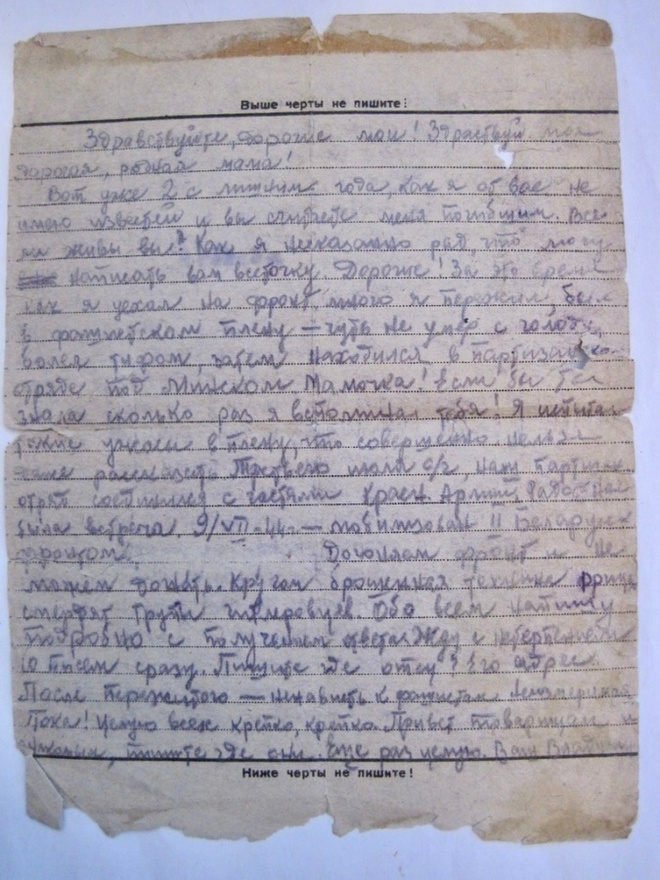 Выше черты не пишите!
Здравствуйте, дорогие мои! Здраствуй моя
дорогая, родная мама!
Вот уже 2 с лишним года, как я от вас не
имею известей и вы считаете меня погибшим. Все
ли живы вы? Как я несказанно рад, что могу
написать вам весточку. Дорогие! За это время
как я уехал на фронт много я пережил, был
в фашистском плену — чуть не умер с голоду,
болел тифом, затем находился в партизанско-
отряде под Минском. Мамочка! Если бы ты
знала сколько раз я вспоминал тебя! Я испытал
такие ужасы в плену, что совершенно нельзя
даже рассказать. Третьего июля с/г, наш партизан
отряд соединился с частями Красн. Армии. Радостная
была встреча. 9/VII-44г. — мобилизован II Беларуск
фронтом. Догоняем фронт и не
можем догнать. Кругом брошенная техника фрица
смердят трупы гитлеровцев. Обо всем напишу
подробно с получением ответа. Жду с нетерпением
10 писем сразу. Пишите где отец? Его адрес.
После пережитого — ненависть к фашистам неизмеримая
Пока! Целую всех крепко, крепко. Привет товарищам и
пишите где они. Еще раз целую. Ваш Владимир
Ниже черты не пишите!